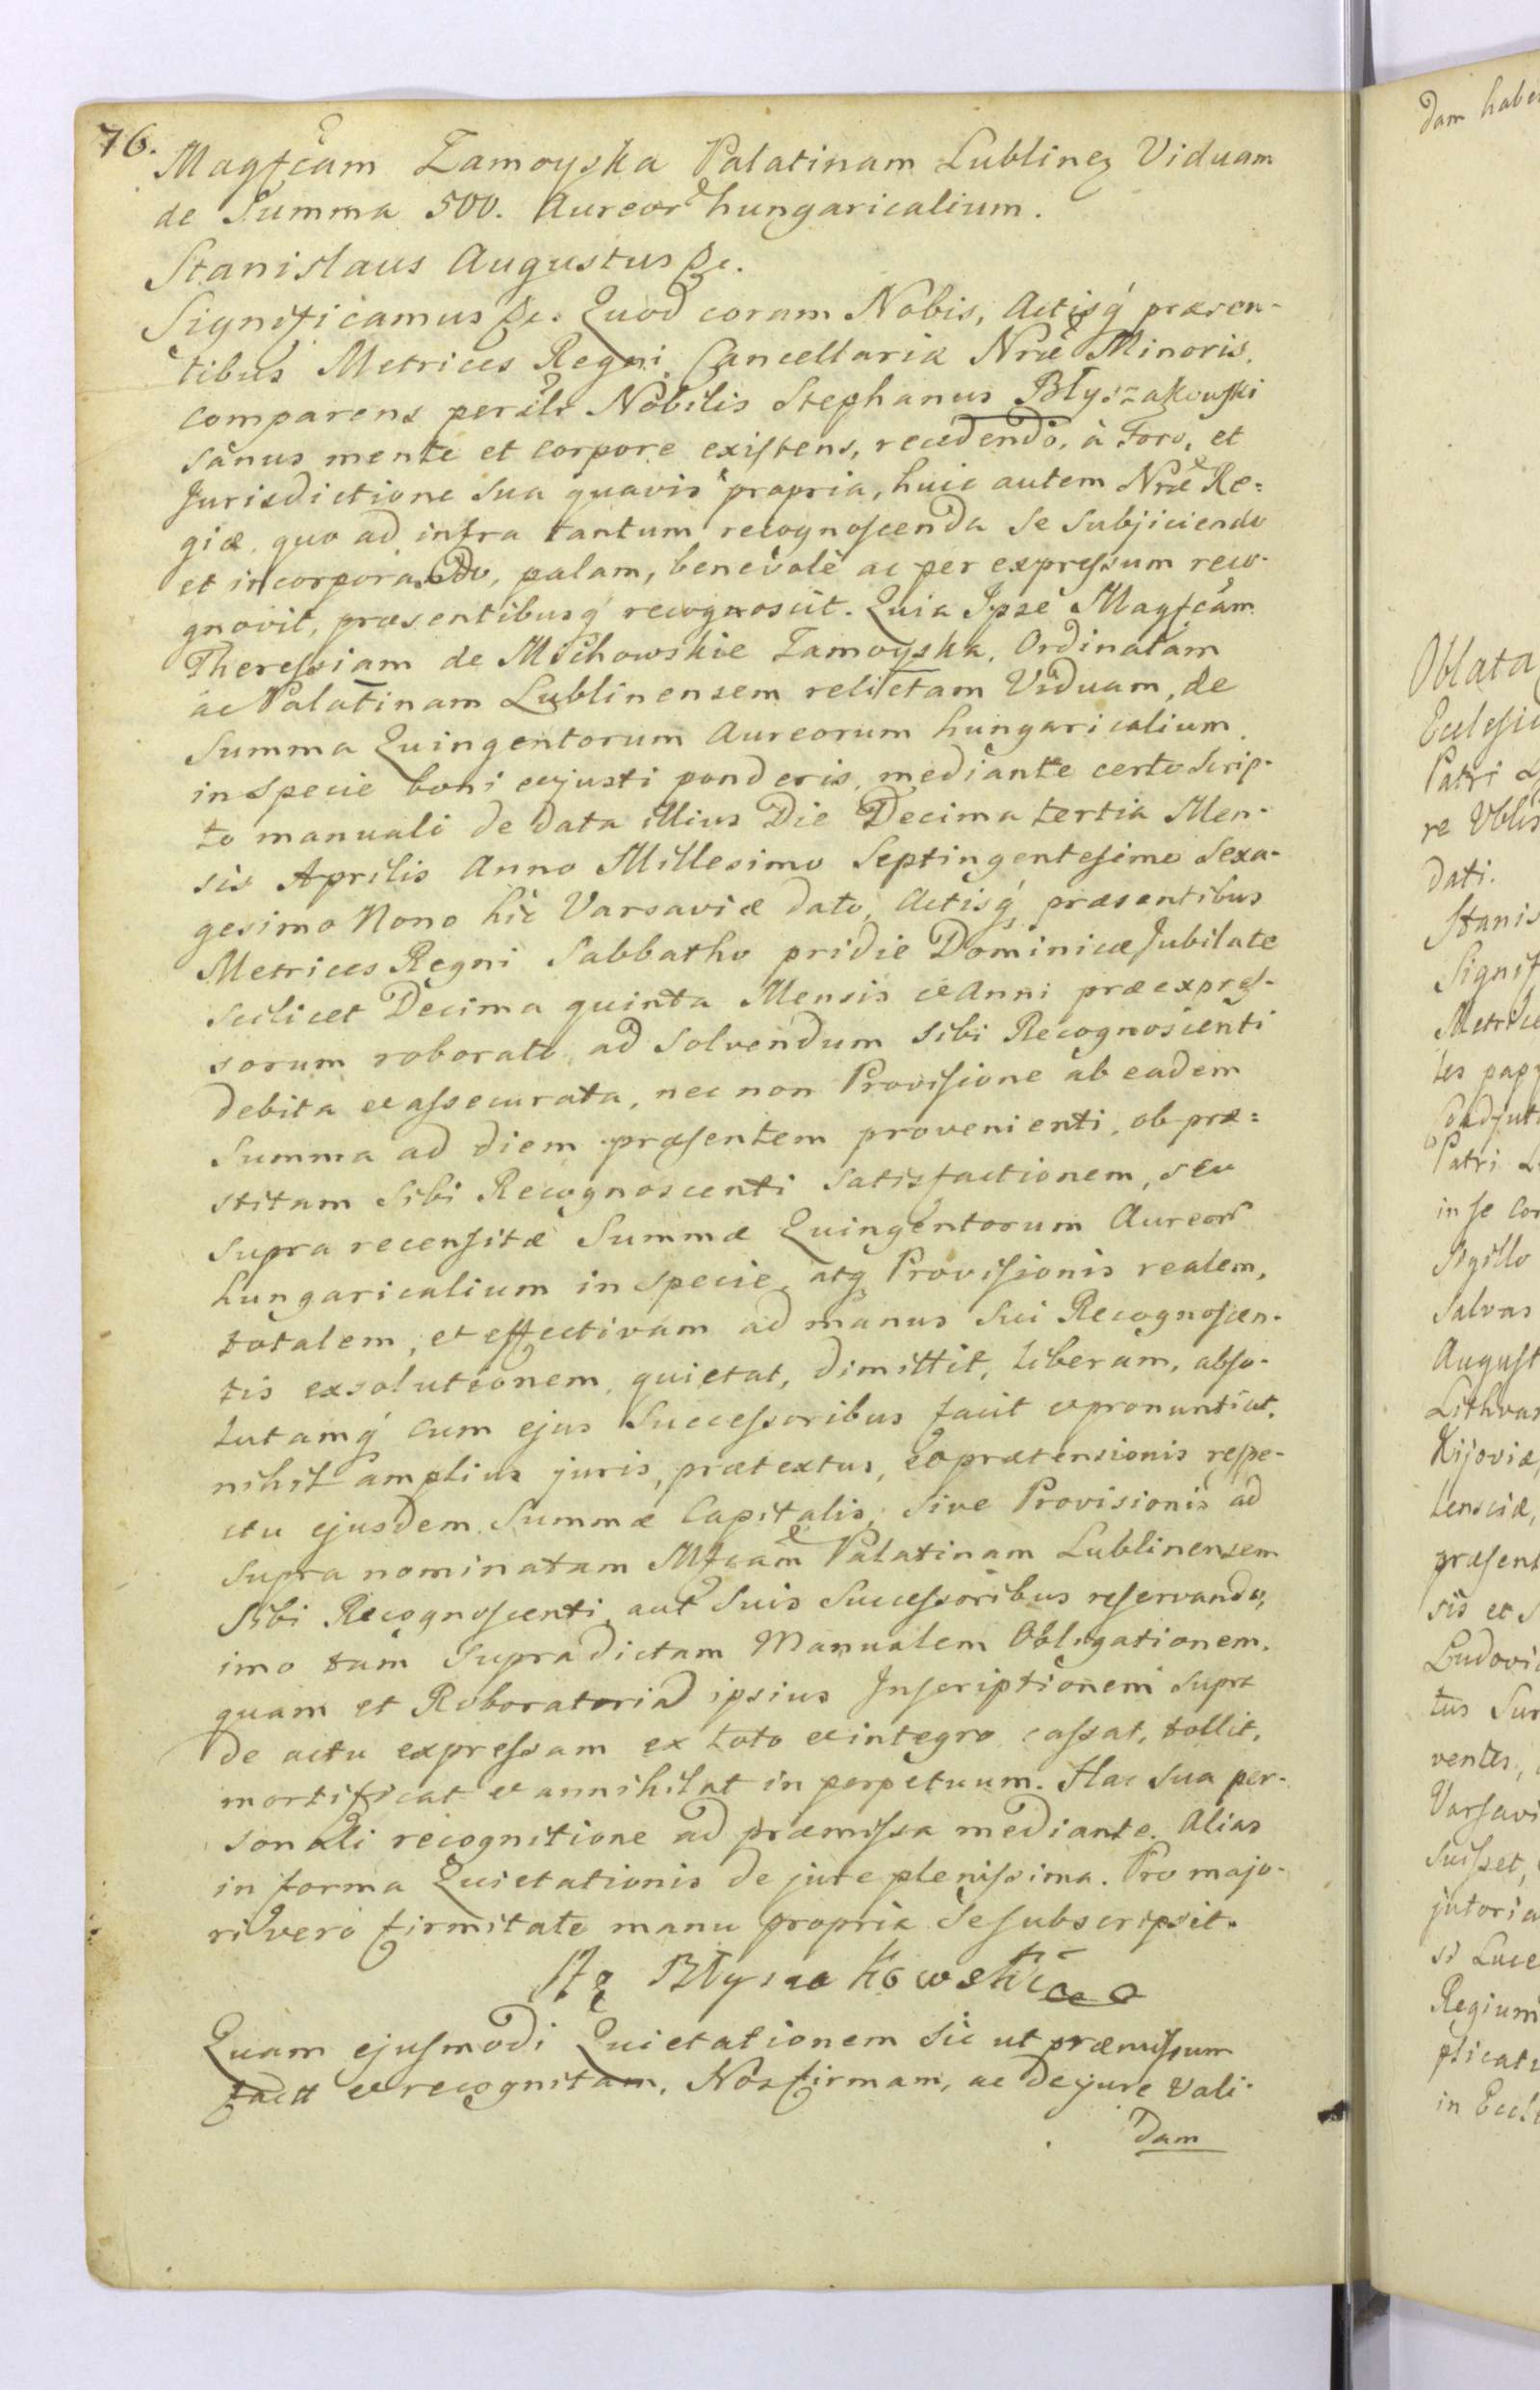 76.
Magfcam Zamoyska Palatinam Lublineȝ Viduam
de Summa 500. Aureor hungaricalium.
Stanislaus Augustus &c.
Significamus &c. Quod coram Nobis, Actisq́ præsen-
tibus Metrices Regni Cancellaria Nræ Minoris,
comparens perillr Nobilis Stephanus Błyszakowski
sanus mente et corpore existens, recedendo, à Foro, et
Jurisdictione sua quavis propria, huic autem Nræ Re=
giæ, quo ad infra tantum recognoscenda se subjiciendo
et incorporando, palam, benevolè ac per expressum reco-
gnovit, præsentibusq́ recognoscit. Quia Ipse Magfcam
Theressiam de Michowskie Zamoyska, Ordinatam
ac Palatinam Lublinensem relictam Viduam, de
Summa Quingentorum Aureorum hungaricalium
in specie boni et justi ponderis, mediante certo Scrip-
to manuali de data illius Die Decima tertia Men-
sis Aprilis Anno Millesimo Septingentesimo Sexa-
gesimo Nono hic Varsaviæ dato, Actisq́ præsentibus
Metrices Regni Sabbatho pridie Dominicæ Jubilate
scilicet Decima quinta Mensis et Anni præexpres-
sorum roborato, ad solvendum sibi Recognoscenti
debita et assecurata, nec non Provisione ab eadem
Summa ad diem præsentem provenienti, ob præ=
stitam sibi Recognoscenti satisfactionem, seu
supra recensitæ Summæ Quingentorum Aureor
hungaricalium in specie, atq Provisionis realem,
totalem, et effectivam ad manus sui Recognoscen-
tis exsolutionem, quietat, dimittit, liberam, abso-
lutamq́ cum ejus Successoribus facit et pronuntiat,
nihil amplius juris, prætextus, et prætensionis respe-
ctu ejusdem Summæ Capitalis, sive Provisionis ad
supra nominatam Mfcam Palatinam Lublinensem
sibi Recognoscenti aut suis Successoribus reservando,
imo tam supradictam Manualem Obligationem,
quam et Roboratoria ipsius Inscriptionem supra
de actu expressam ex toto et integro cassat, tollit,
mortificat et annihilat in perpetuum. Hac sua per-
sonali recognitione ad præmissa mediante. Alias
in forma Quietationis de jure plenissima. Pro majo-
ri vero firmitate manu propria se subscripsit.
Błyszakowski
Quam ejusmodi Quietationem sic ut præmissum
et recognitam, Nos firmam, ac de jure Vali-
dam
dam habe
Oblata
Ecclesi
Patri
re
dati.
Stanis
Signif
Metrice
tes
Patri
in se
Sigillo
Salvas
August
Lithvan
Kijoviæ,
præsent
sis et
Ludovi
tus
ventes,
Varsavi
jutoria
si Luce
Regium
plicat
in Eccl